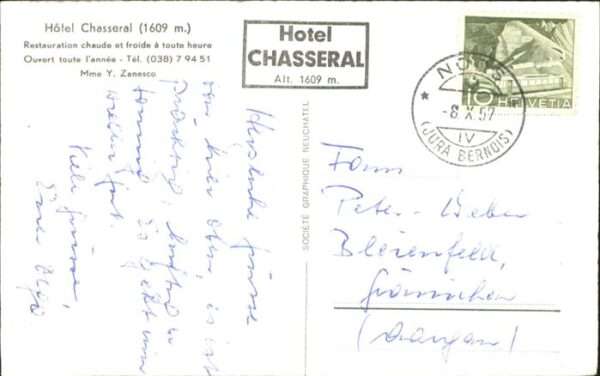 Hôtel Chasseral (1609 m.)
Restauration chaude et froide à toute heure
Ouvert toute l'année - Tél. (038) 7 94 51
Mme Y. Zanesco
Hotel
CHASSERAL
Alt. 1609 m.
NODS
-8.X.57
IV
(JURA BERNOIS)
10 HELVETIA
SOCIÉTÉ GRAPHIQUE NEUCHATEL
Herzliche Grüsse
von hier oben, es ist
prächtig,
es geht mir
Viele Grüsse,
Fam.
Peter-Weber
Gränichen
(Aargau)